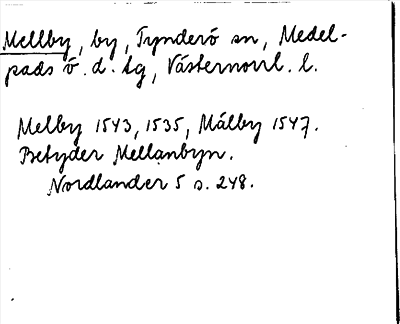 Mellby, by, Tynderö sn, Medel-
pads ö. d. tg, Västernorrl. l.
Melby 1543, 1535, Målby 1547.
Betyder Mellanbyn.
Nordlander 5 s. 248.